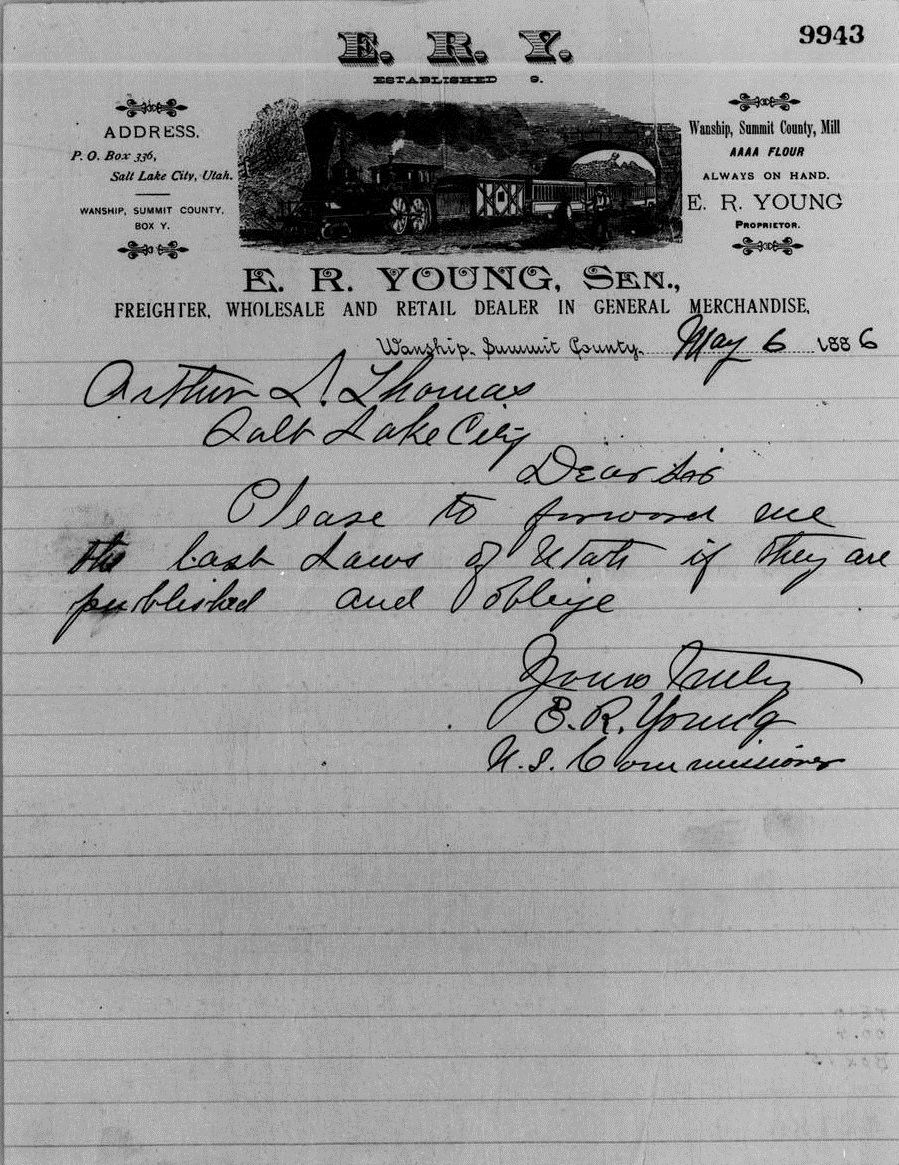 9943
E. R. Y.
ESTABLISHED 9.
ADDRESS,
P. O. Box 336,
Salt Lake City, Utah.
WANSHIP, SUMMIT COUNTY,
BOX Y.
Wanship, Summit County, Mill
AAAA FLOUR
ALWAYS ON HAND.
E. R. YOUNG
PROPRIETOR.
E. R. YOUNG, SEN.,
FREIGHTER, WHOLESALE AND RETAIL DEALER IN GENERAL MERCHANDISE,
Wanship, Summit County, May 6 1886
Arthur L. Thomas
Salt Lake City
Dear Sir
Please to forward me
the last Laws of Utah if they are
published and oblige
Yours Truly
E. R. Young
U. S. Commissioner